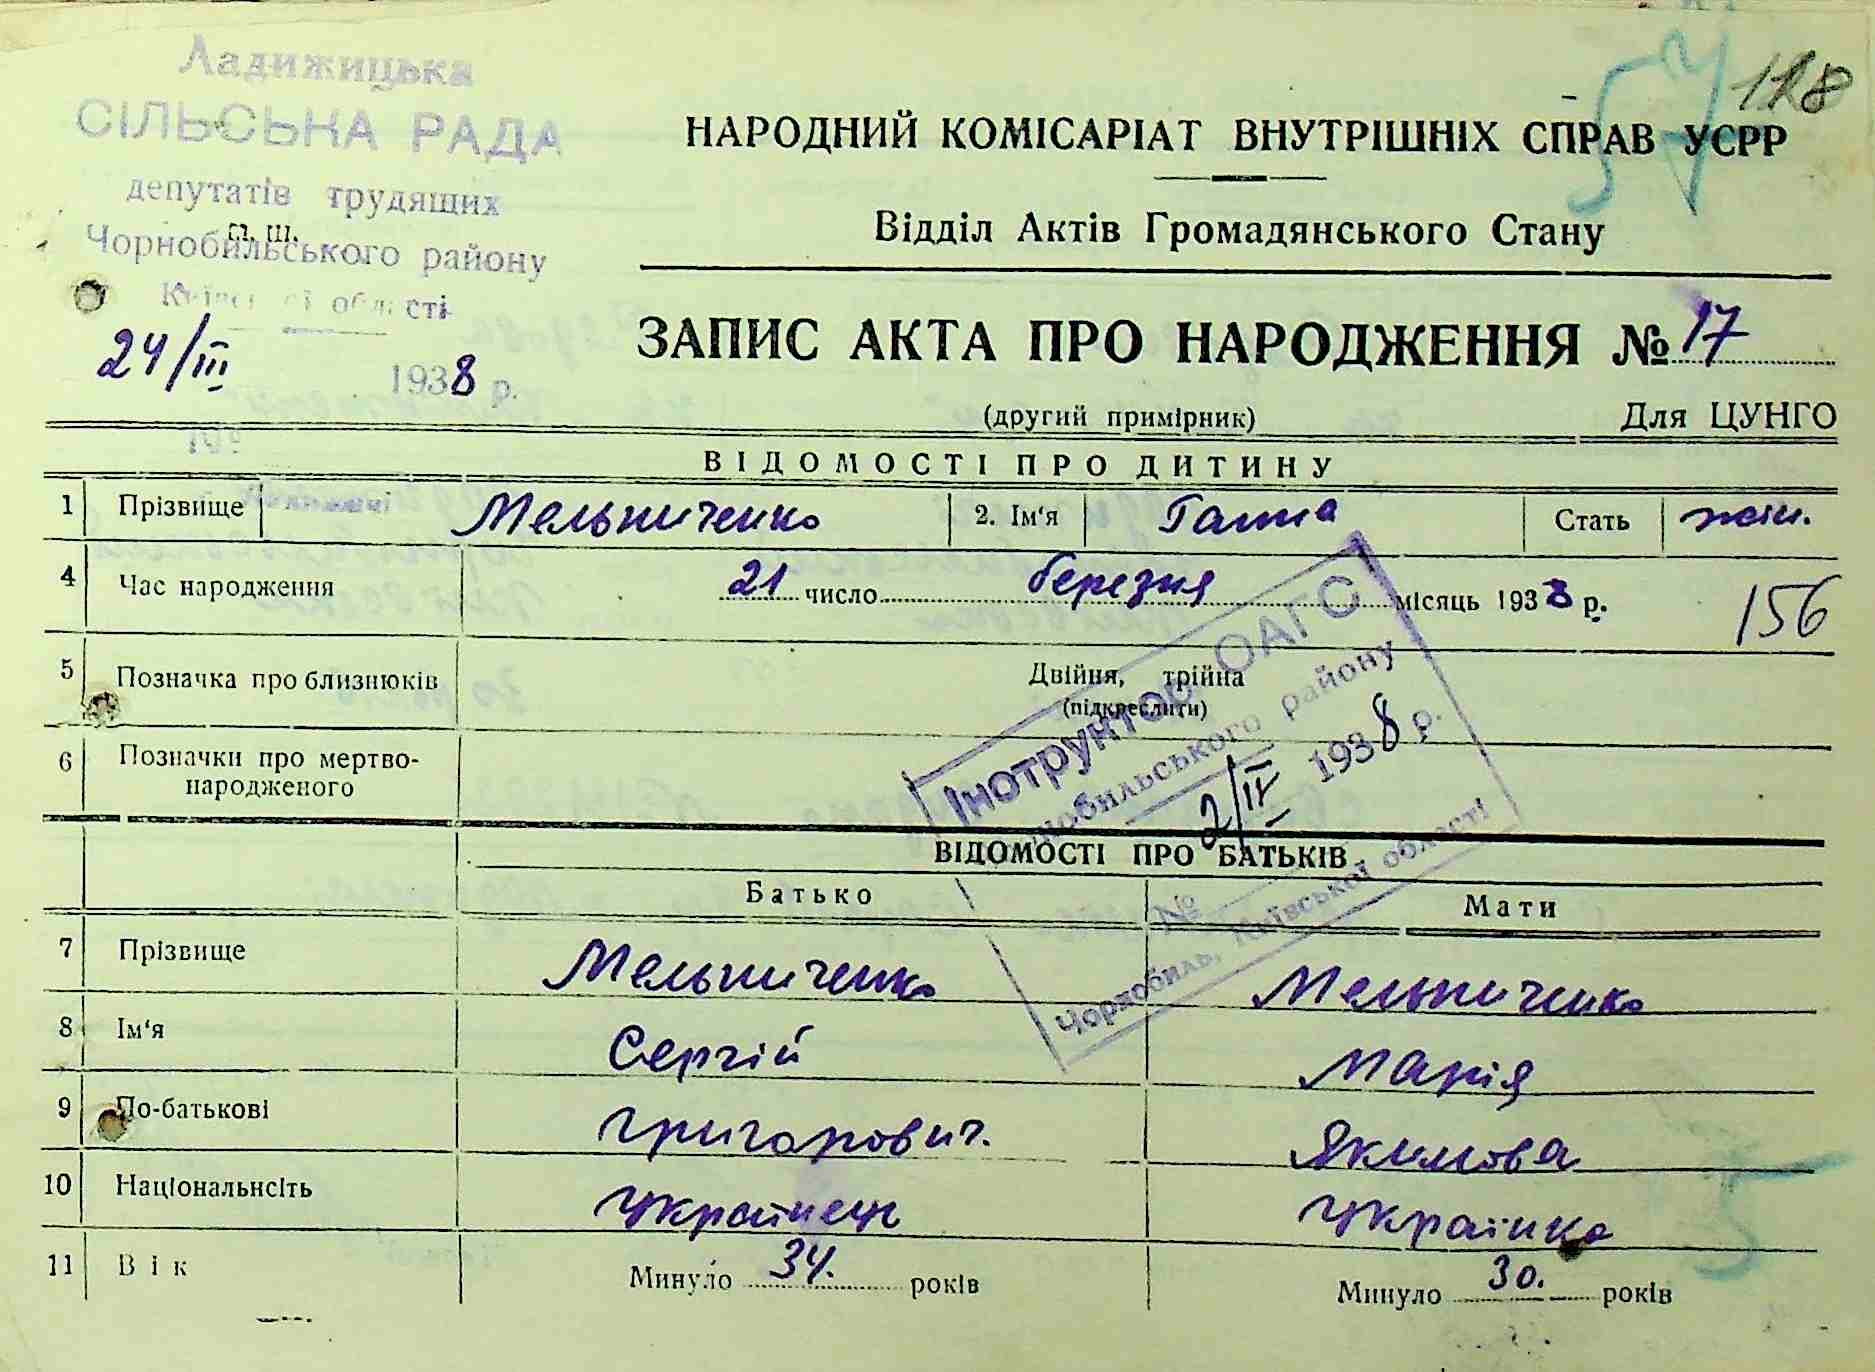 Ладижицька
СІЛЬСЬКА РАДА
депутатів трудящих
п. ш.
Чорнобильського району
Київської області
24/III 1938 р.
57 118
НАРОДНИЙ КОМІСАРІАТ ВНУТРІШНІХ СПРАВ УСРР
Відділ Актів Громадянського Стану
ЗАПИС АКТА ПРО НАРОДЖЕННЯ № 17
(другий примірник) Для ЦУНГО
ВІДОМОСТІ ПРО ДИТИНУ
1 Прізвище Мельниченко 2. Ім'я Ганна Стать жін.
4 Час народження 21 число березня місяць 1938 р. 156
5 Позначка про близнюків Двійня, трійна
(підкреслити)
6 Позначки про мертво-
народженого
Інструктор ОАГС
Чорнобильського району
2/IV 1938 р.
№
Чорнобиль, Київської області
ВІДОМОСТІ ПРО БАТЬКІВ
Батько Мати
7 Прізвище Мельниченко Мельниченко
8 Ім'я Сергій Марія
9 По-батькові Григорович. Якимова
10 Національнсіть Українець Українка
11 Вік Минуло 34. років Минуло 30. років